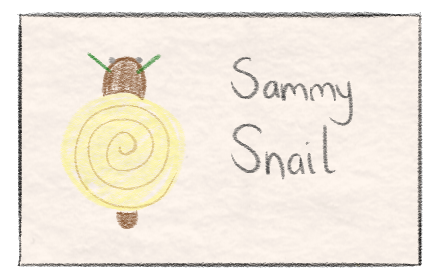 Sammy
Snail